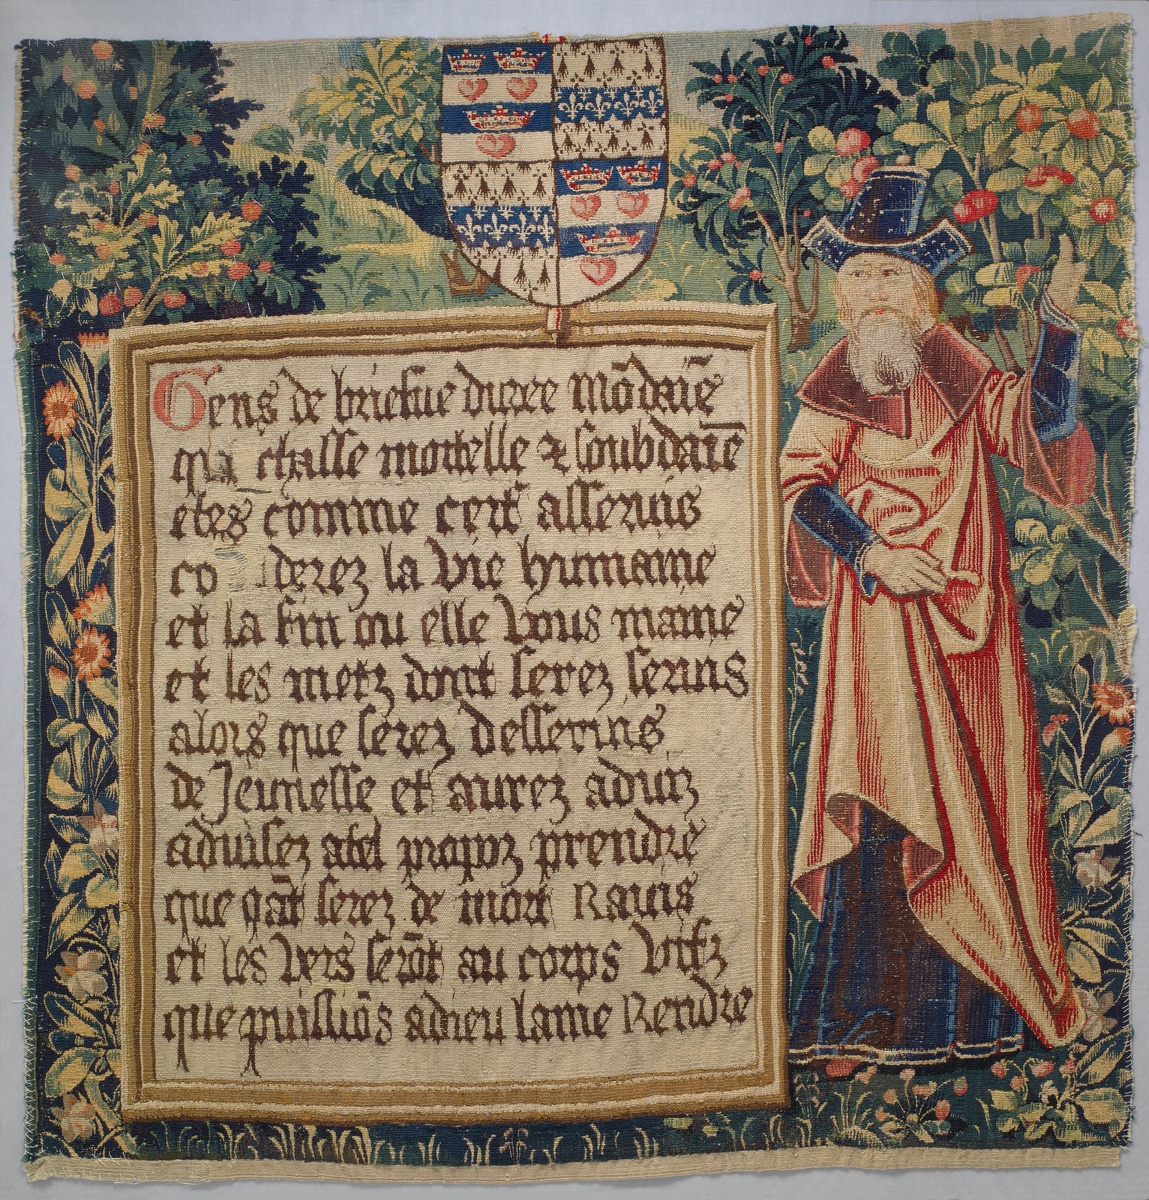 Gens de briefue duree mõdaiñe
qui chasse mortelle & soubdaiñe
etes comme cerf asseruis
co derez la vie humaine
et la fin ou elle vous maine
et les metz dont serez seruis
alors que serez desseruis
de Jeunesse et aurez aduiz
aduisez a tel propoz prendre
que qãt serez de mort Rauis
et les vers serõt au corps vifz
que puissiõs a dieu lame Rendre